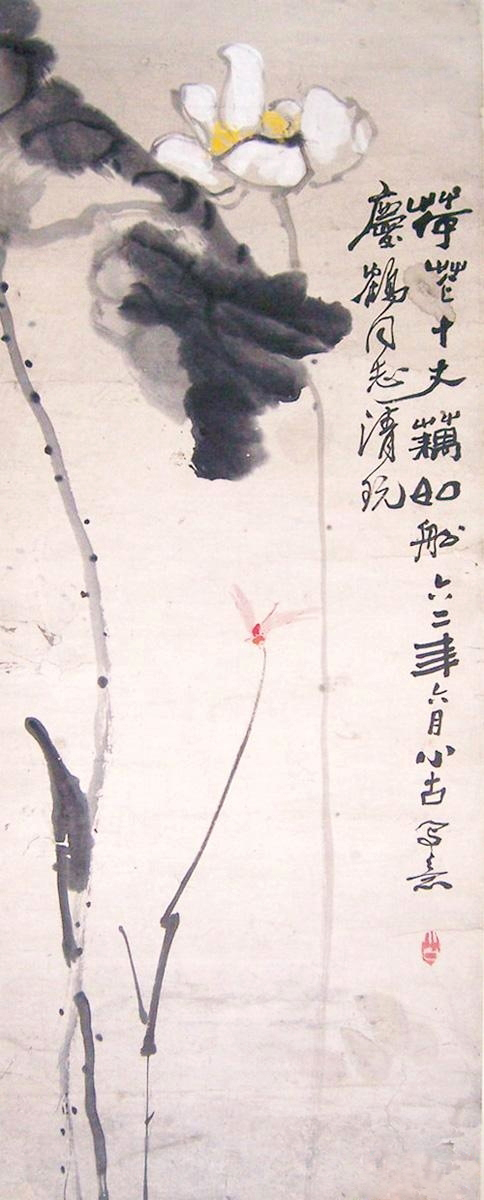 荷花十丈藕如船六二年六月小古写意
慶鶴同志清玩